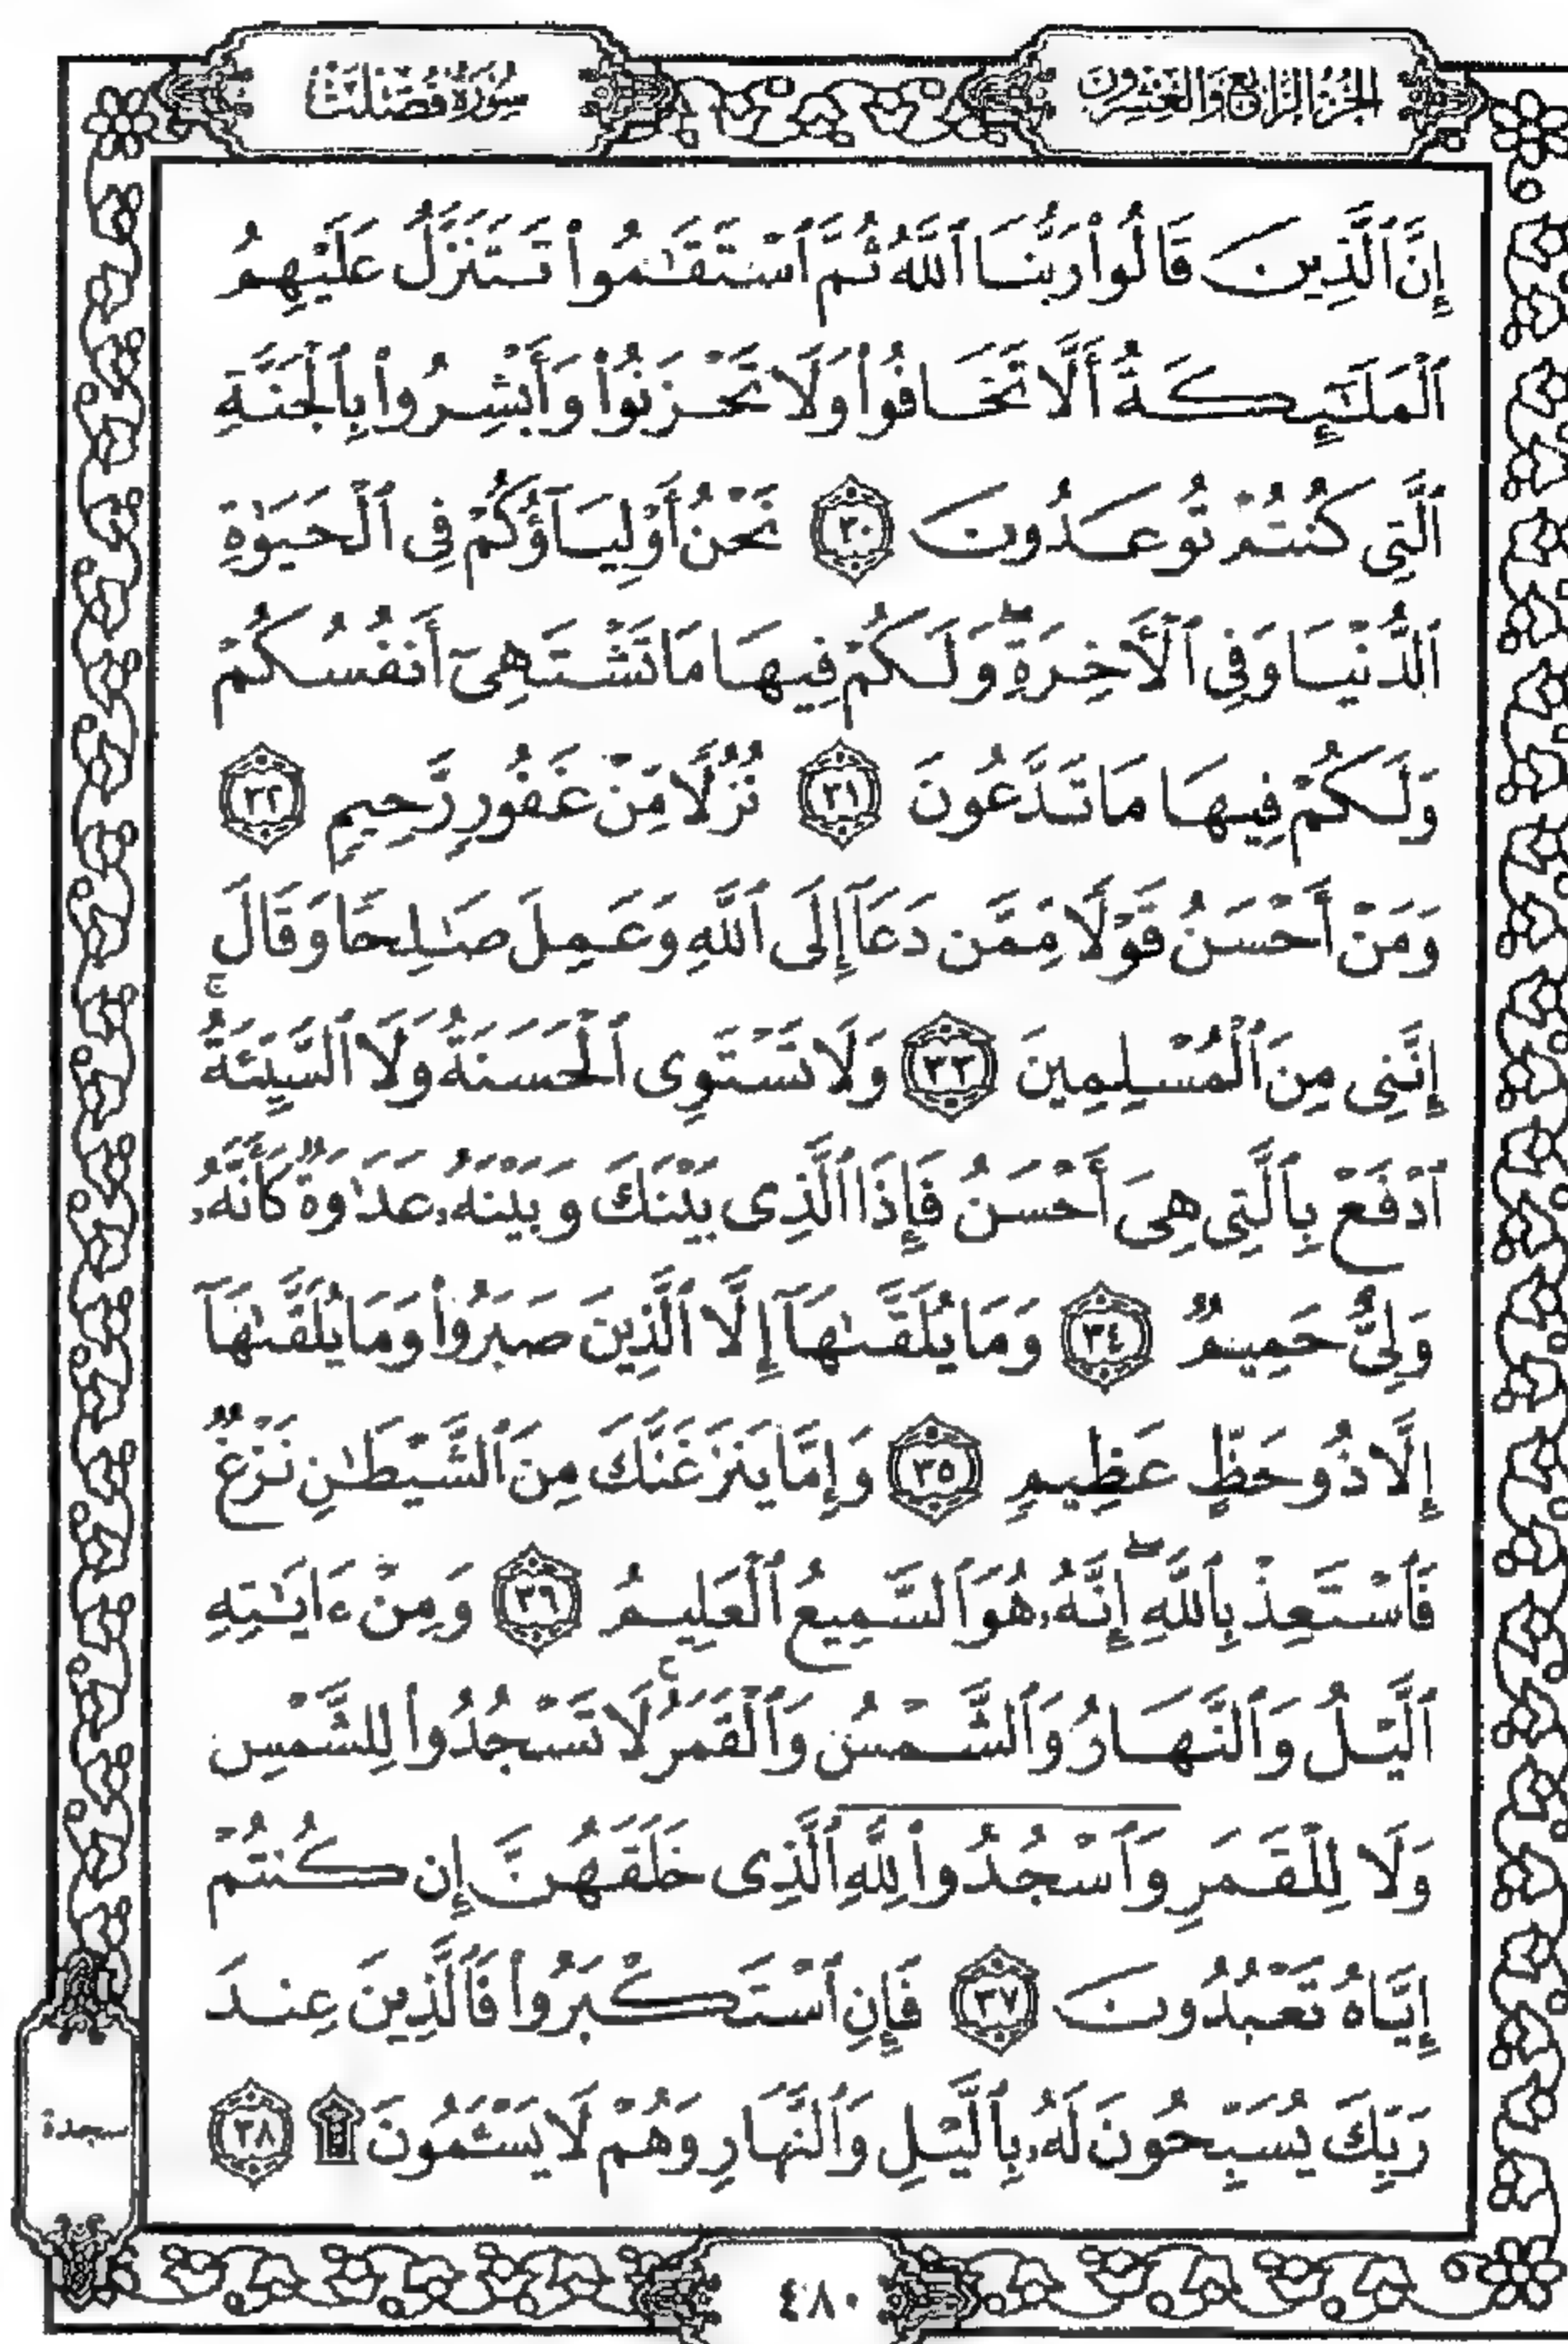 الجزء الرابع والعشرون
سورة فصلت
إِنَّ ٱلَّذِينَ قَالُوا۟ رَبُّنَا ٱللَّهُ ثُمَّ ٱسْتَقَـٰمُوا۟ تَتَنَزَّلُ عَلَيْهِمُ
ٱلْمَلَـٰٓئِكَةُ أَلَّا تَخَافُوا۟ وَلَا تَحْزَنُوا۟ وَأَبْشِرُوا۟ بِٱلْجَنَّةِ
ٱلَّتِى كُنتُمْ تُوعَدُونَ ٣٠ نَحْنُ أَوْلِيَآؤُكُمْ فِى ٱلْحَيَوٰةِ
ٱلدُّنْيَا وَفِى ٱلْأَخِرَةِ ۖ وَلَكُمْ فِيهَا مَا تَشْتَهِىٓ أَنفُسُكُمْ
وَلَكُمْ فِيهَا مَا تَدَّعُونَ ٣١ نُزُلًا مِّنْ غَفُورٍ رَّحِيمٍ ٣٢
وَمَنْ أَحْسَنُ قَوْلًا مِّمَّن دَعَآ إِلَى ٱللَّهِ وَعَمِلَ صَـٰلِحًا وَقَالَ
إِنَّنِى مِنَ ٱلْمُسْلِمِينَ ٣٣ وَلَا تَسْتَوِى ٱلْحَسَنَةُ وَلَا ٱلسَّيِّئَةُ ۚ
ٱدْفَعْ بِٱلَّتِى هِىَ أَحْسَنُ فَإِذَا ٱلَّذِى بَيْنَكَ وَبَيْنَهُۥ عَدَٰوَةٌ كَأَنَّهُۥ
وَلِىٌّ حَمِيمٌ ٣٤ وَمَا يُلَقَّىٰهَآ إِلَّا ٱلَّذِينَ صَبَرُوا۟ وَمَا يُلَقَّىٰهَآ
إِلَّا ذُو حَظٍّ عَظِيمٍ ٣٥ وَإِمَّا يَنزَغَنَّكَ مِنَ ٱلشَّيْطَـٰنِ نَزْغٌ
فَٱسْتَعِذْ بِٱللَّهِ ۖ إِنَّهُۥ هُوَ ٱلسَّمِيعُ ٱلْعَلِيمُ ٣٦ وَمِنْ ءَايَـٰتِهِ
ٱلَّيْلُ وَٱلنَّهَارُ وَٱلشَّمْسُ وَٱلْقَمَرُ ۚ لَا تَسْجُدُوا۟ لِلشَّمْسِ
وَلَا لِلْقَمَرِ وَٱسْجُدُوا۟ لِلَّهِ ٱلَّذِى خَلَقَهُنَّ إِن كُنتُمْ
إِيَّاهُ تَعْبُدُونَ ٣٧ فَإِنِ ٱسْتَكْبَرُوا۟ فَٱلَّذِينَ عِندَ
رَبِّكَ يُسَبِّحُونَ لَهُۥ بِٱلَّيْلِ وَٱلنَّهَارِ وَهُمْ لَا يَسْـَٔمُونَ ۩ ٣٨
سجدة
٤٨٠